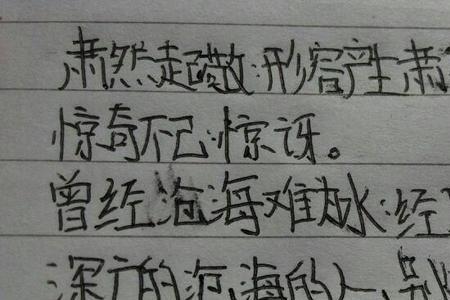 肃然起敬:形容产生肃
惊奇不已:惊讶。
曾经沧海难为水:经
深广的沧海的人,别